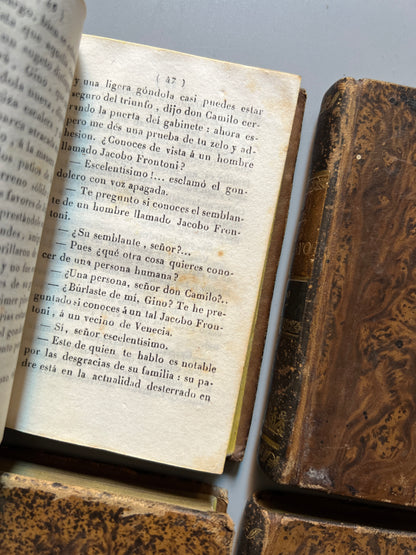 ( 47 )
y una ligera góndola casi puedes estar
seguro del triunfo, dijo don Camilo cer-
rando la puerta del gabinete : ahora es-
pero me dés una prueba de tu zelo y ad-
hesion. ¿Conoces de vista á un hombre
llamado Jacobo Frontoni?
— Escelentísimo!... esclamó el gon-
dolero con voz apagada.
— Te pregunto si conoces el semblan-
te de un hombre llamado Jacobo Fron-
toni.
— ¿Su semblante, señor?...
— Pues ¿qué otra cosa quieres cono-
cer de una persona humana?
— ¿Una persona, señor don Camilo?..
— ¿Búrlaste de mí, Gino? Te he pre-
guntado si conoces á un tal Jacobo Fron-
toni, á un vecino de Venecia.
— Sí, señor escelentísimo.
— Este de quien te hablo es notable
por las desgracias de su familia : su pa-
dre está en la actualidad desterrado en